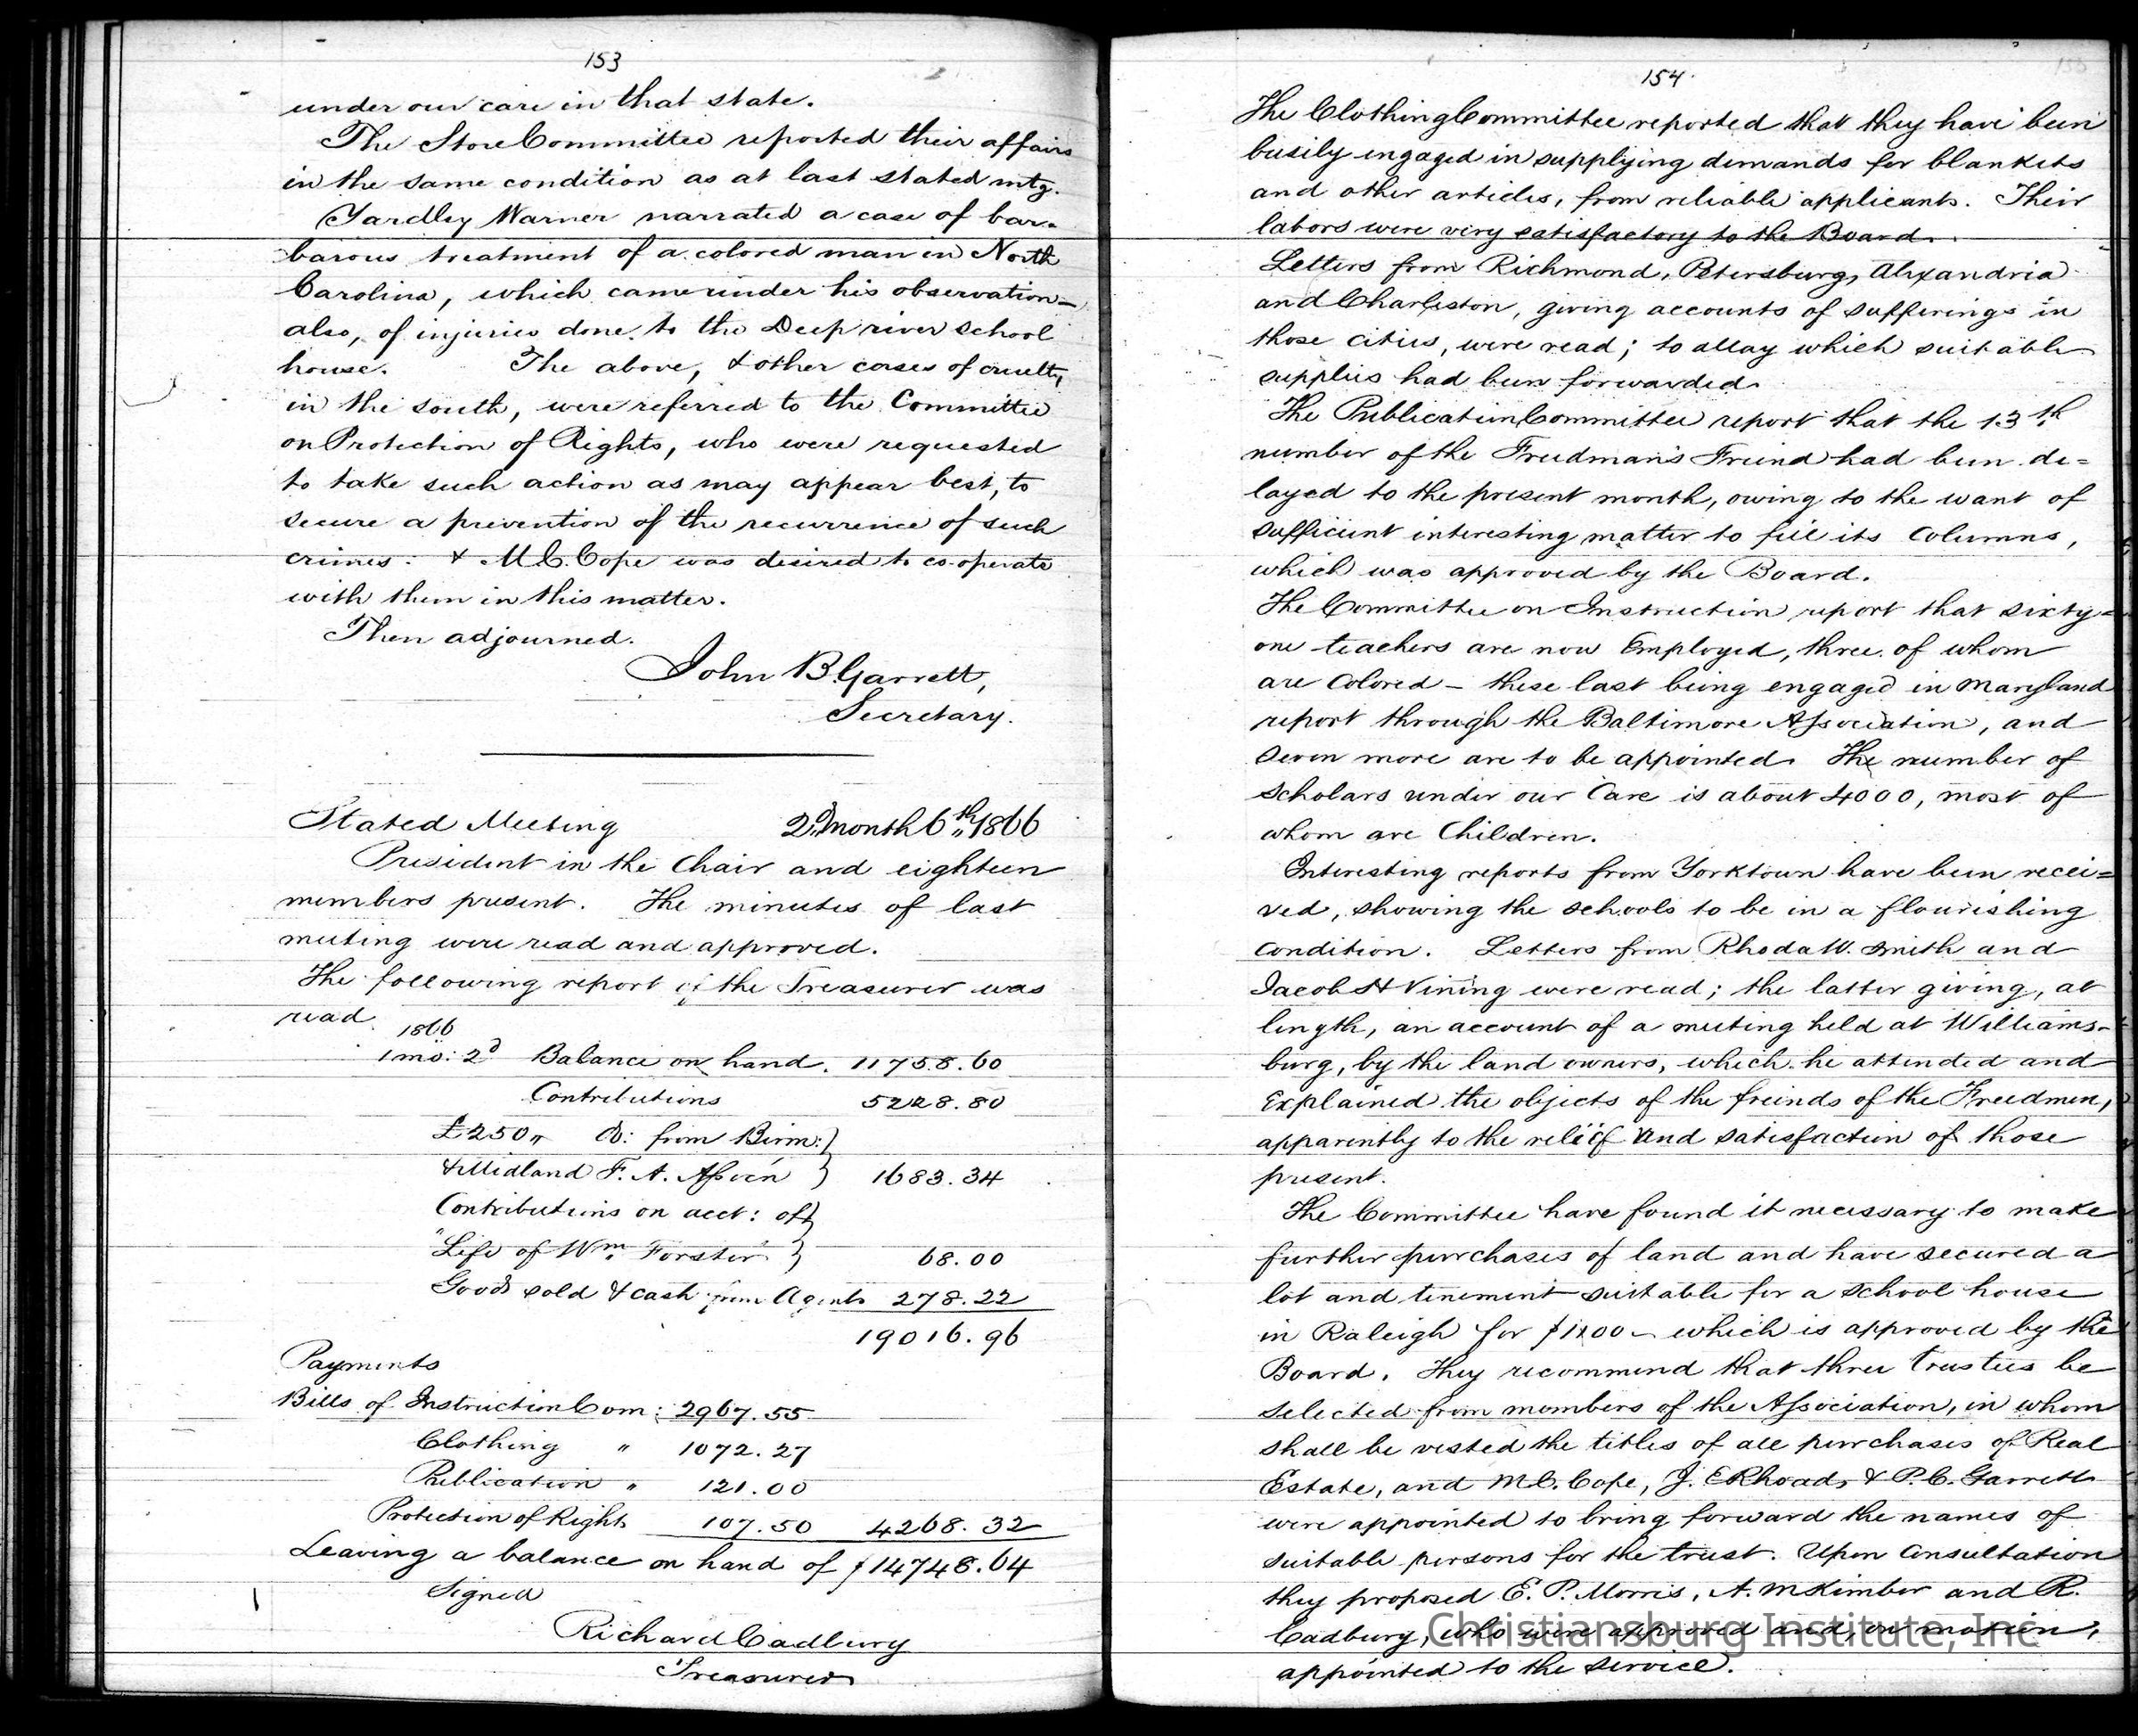 153
under our care in that state.
The Store Committee reported their affairs
in the same condition as at last stated mtg.
Yardley Warner narrated a case of bar-
barous treatment of a colored man in North
Carolina, which came under his observation -
also, of injuries done to the Deep river school
house. The above, & other cases of cruelty
in the south, were referred to the Committee
on Protection of Rights, who were requested
to take such action as may appear best, to
secure a prevention of the recurrence of such
crimes: & M.C. Cope was desired to co-operate
with them in this matter.
Then adjourned.
John B. Garrett,
Secretary.
Stated Meeting 2d month 6th 1866
President in the Chair and eighteen
members present. The minutes of last
meeting were read and approved.
The following report of the Treasurer was
read.
1866
1 mo: 2d Balance on hand. 11758.60
Contributions 5228.80
£250 „ Do: from Birm:
& Midland F. A. Assocn 1683.34
Contributions on acct: of
"Life of Wm. Forster" 68.00
Goods sold & cash from Agents 278.22
19016.96
Payments
Bills of Instruction Com: 2967.55
Clothing " 1072.27
Publication " 121.00
Protection of Rights 107.50 4268.32
Leaving a balance on hand of $14748.64
Signed
Richard Cadbury
Treasurer
154.
The Clothing Committee reported that they have been
busily engaged in supplying demands for blankets
and other articles, from reliable applicants. Their
labors were very satisfactory to the Board.
Letters from Richmond, Petersburg, Alexandria
and Charleston, giving accounts of sufferings in
those cities, were read; to allay which suitable
supplies had been forwarded.
The Publication Committee report that the 13th
number of the Freedman's Freind had been de=
layed to the present month, owing to the want of
sufficient interesting matter to fill its Columns,
which was approved by the Board.
The Committee on Instruction report that sixty=
one teachers are now Employed, three of whom
are Colored - these last being engaged in Maryland
report through the Baltimore Association, and
seven more are to be appointed. The number of
scholars under our Care is about 4000, most of
whom are Children.
Interesting reports from Yorktown have been recei=
ved, showing the schools to be in a flourishing
condition. Letters from Rhoda W. Smith and
Jacob H Vining were read; the latter giving, at
length, an account of a meeting held at Williams-
burg, by the land owners, which he attended and
Explained the objects of the freinds of the Freedmen,
apparently to the relief and satisfaction of those
present.
The Committee have found it necessary to make
further purchases of land and have secured a
lot and tenement suitable for a school house
in Raleigh for which is approved by the
Board. They recommend that three trustees be
selected from members of the Association, in whom
shall be vested the titles of all purchases of Real
Estate, and M.C. Cope, J. E Rhoads & P.C. Garrett
were appointed to bring forward the names of
suitable persons for the trust. Upon Consultation
they proposed E. P. Morris, A. M Kimber and R.
Cadbury, who were approved and, on motion,
appointed to the service.
Christiansburg Institute, Inc